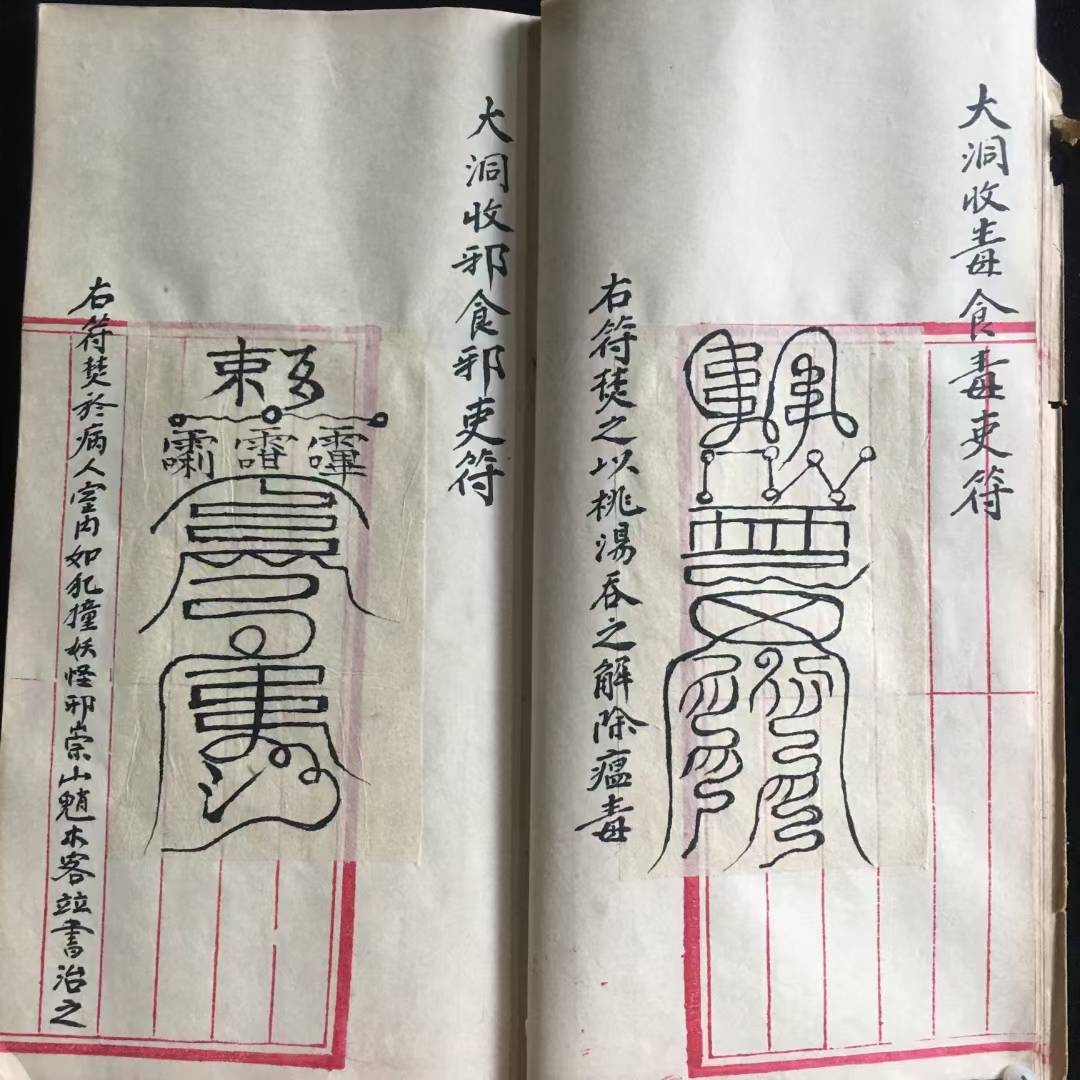 大洞收毒食毒吏符
右符焚之以桃湯吞之解除瘟毒
大洞收邪食邪吏符
敕
右符焚於病人室內如犯撞妖怪邪祟山魈木客竝書治之